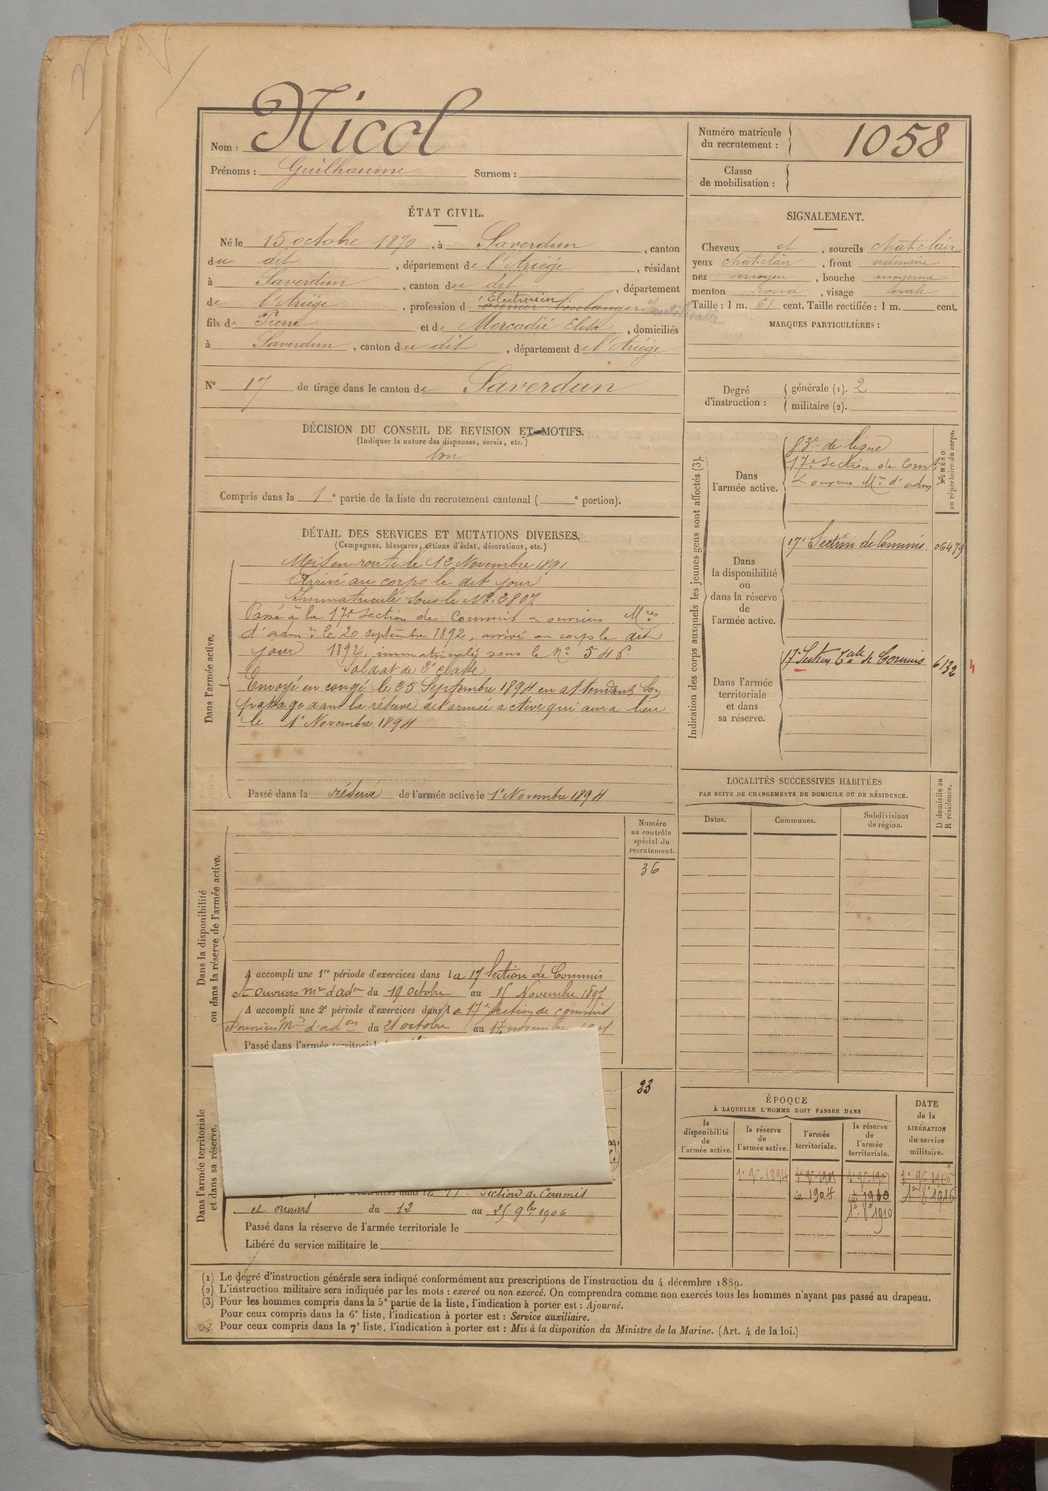 Nom : Nicol
Prénoms : Guilhaume Surnom :
Numéro matricule du recrutement : 1058
Classe de mobilisation :
ÉTAT CIVIL.
Né le 15 octobre 1870, à Saverdun, canton
du dit, département de l'Ariége, résidant
à Saverdun, canton du dit, département
de l'Ariége, profession d électricien
fils de Pierre et de Mercadié, domiciliés
à Saverdun, canton du dit, département de l'Ariége
N° 17 de tirage dans le canton de Saverdun
SIGNALEMENT.
Cheveux et, sourcils chat. clair
yeux chat. clair, front ordinaire
nez moyen, bouche moyenne
menton rond, visage ovale
Taille : 1 m. 61 cent. Taille rectifiée : 1 m. cent.
MARQUES PARTICULIÈRES :
Degré d'instruction :
générale (1). 2
militaire (2).
DÉCISION DU CONSEIL DE REVISION ET MOTIFS.
(Indiquer la nature des dispenses, sursis, etc.)
bon
Compris dans la 1e partie de la liste du recrutement cantonal ( e portion).
DÉTAIL DES SERVICES ET MUTATIONS DIVERSES.
(Campagnes, blessures, actions d'éclat, décorations, etc.)
Dans l'armée active.
Mis en route le 12 Novembre 1891
Arrivé au corps le dit jour
Immatriculé sous le N°. 2807
Passé à la 17e section de Commis & ouvriers Mres
d'admon le 20 septembre 1892, arrivé au corps le dit
jour 1892, immatriculé sous le No 546
Soldat de 2e classe
Envoyé en congé le 25 Septembre 1894 en attendant son
passage dans la réserve de l'armée active qui aura lieu
le 1er Novembre 1894
Passé dans la réserve de l'armée active le 1er Novembre 1894
Indication des corps auxquels les jeunes gens sont affectés (3).
NUMÉRO au répertoire du corps.
Dans l'armée active.
83e de ligne
17e section de Comis
& ouvriers Mres d'adm
Dans la disponibilité ou dans la réserve de l'armée active.
17e Section de Commis 06479
Dans l'armée territoriale et dans sa réserve.
17 Section de Commis 6132
LOCALITÉS SUCCESSIVES HABITÉES
PAR SUITE DE CHANGEMENTS DE DOMICILE OU DE RÉSIDENCE.
Dates. Communes. Subdivisions de région. D domicile ou R résidence.
Dans la disponibilité ou dans la réserve de l'armée active.
Numéro au contrôle spécial du recrutement.
36
A accompli une 1re période d'exercices dans la 17 Section de Commis
et ouvriers mres d'adm du 19 octobre au 15 Novembre 1897
A accompli une 2e période d'exercices dans la 17e Section de commis
et ouvriers Mres d'adon du 21 octobre au 17 novembre
Passé dans l'armée territoriale
Dans l'armée territoriale et dans sa réserve.
33
Section de Commis
et ouvriers du 13 au 25 9bre 1906
Passé dans la réserve de l'armée territoriale le
Libéré du service militaire le
ÉPOQUE
À LAQUELLE L'HOMME DOIT PASSER DANS
la disponibilité de l'armée active.
la réserve de l'armée active.
l'armée territoriale.
la réserve de l'armée territoriale.
DATE de la LIBÉRATION du service militaire.
1er 9e 1894
1904
1910
1er 8e 1910
1916
(1) Le dégré d'instruction générale sera indiqué conformément aux prescriptions de l'instruction du 4 décembre 1889.
(2) L'instruction militaire sera indiquée par les mots : exercé ou non exercé. On comprendra comme non exercés tous les hommes n'ayant pas passé au drapeau.
(3) Pour les hommes compris dans la 5e partie de la liste, l'indication à porter est : Ajourné.
Pour ceux compris dans la 6e liste, l'indication à porter est : Service auxiliaire.
Pour ceux compris dans la 7e liste, l'indication à porter est : Mis à la disposition du Ministre de la Marine. (Art. 4 de la loi.)